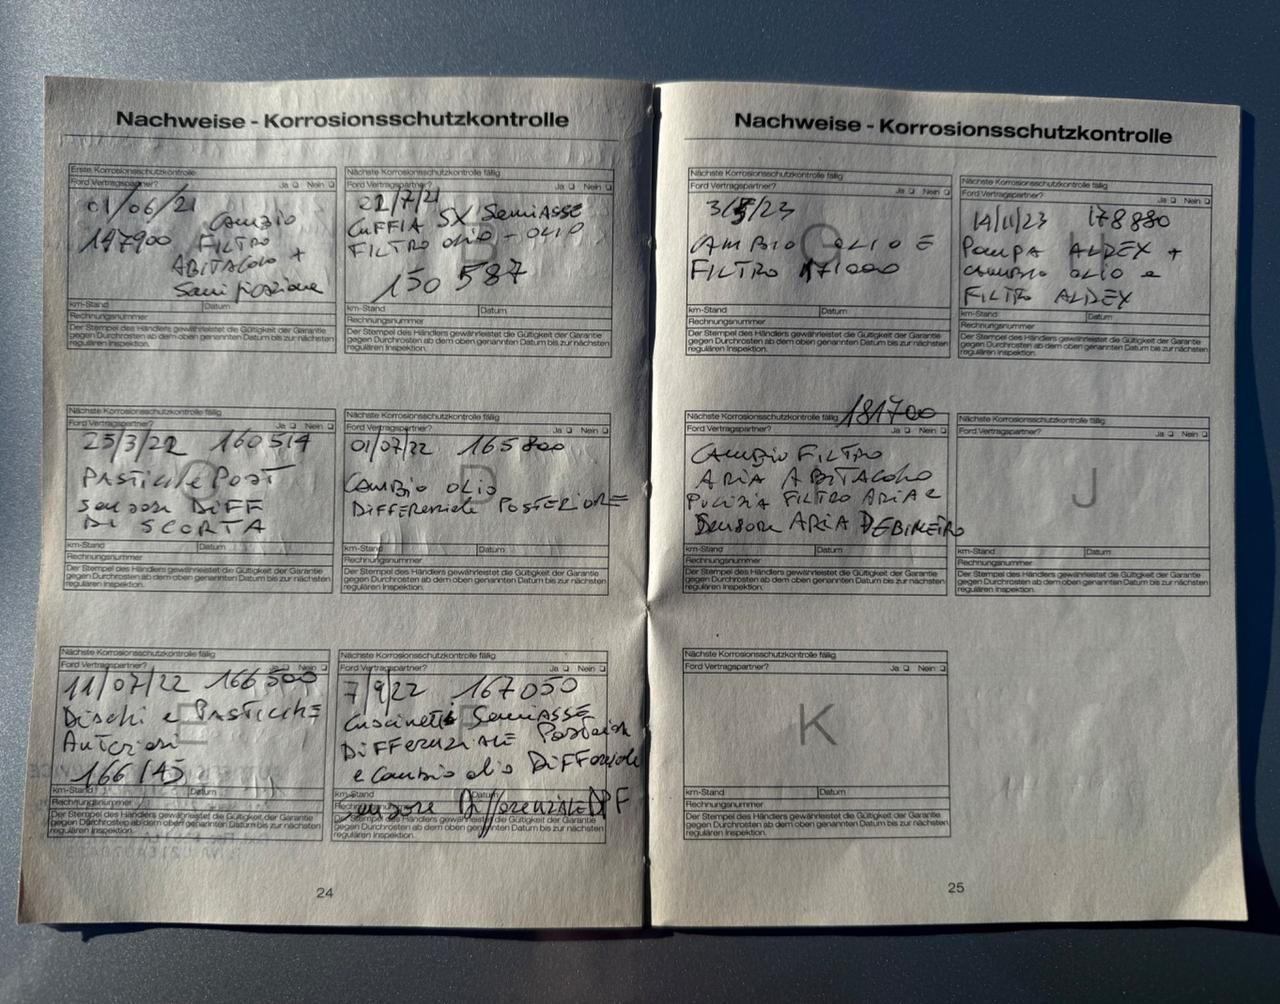 Nachweise - Korrosionsschutzkontrolle
Erste Korrosionsschutzkontrolle
Ford Vertragspartner? Ja Nein
01/06/21 Cambio
147900 FILTRO
ABITACOLO +
Sanificazione
km-Stand Datum
Rechnungsnummer
Der Stempel des Händlers gewährleistet die Gültigkeit der Garantie
gegen Durchrosten ab dem oben genannten Datum bis zur nächsten
regulären Inspektion.
Nächste Korrosionsschutzkontrolle fällig
Ford Vertragspartner? Ja Nein
B
22/7/21
CUFFIA SX SEMIASSE
FILTRO OLIO - OLIO
150 587
km-Stand Datum
Rechnungsnummer
Der Stempel des Händlers gewährleistet die Gültigkeit der Garantie
gegen Durchrosten ab dem oben genannten Datum bis zur nächsten
regulären Inspektion.
Nächste Korrosionsschutzkontrolle fällig
Ford Vertragspartner? Ja Nein
C
25/3/22 160514
PASTICHE POST
sensori DIFF
DI SCORTA
km-Stand Datum
Rechnungsnummer
Der Stempel des Händlers gewährleistet die Gültigkeit der Garantie
gegen Durchrosten ab dem oben genannten Datum bis zur nächsten
regulären Inspektion.
Nächste Korrosionsschutzkontrolle fällig
Ford Vertragspartner? Ja Nein
D
01/07/22 165800
CAMBIO OLIO
DIFFERENZIALE POSTERIORE
km-Stand Datum
Rechnungsnummer
Der Stempel des Händlers gewährleistet die Gültigkeit der Garantie
gegen Durchrosten ab dem oben genannten Datum bis zur nächsten
regulären Inspektion.
Nächste Korrosionsschutzkontrolle fällig
Ford Vertragspartner? Ja Nein
E
11/07/22 166500
Dischi e PASTICCHE
Anteriori
166145
km-Stand Datum
Rechnungsnummer
Der Stempel des Händlers gewährleistet die Gültigkeit der Garantie
gegen Durchrosten ab dem oben genannten Datum bis zur nächsten
regulären Inspektion.
Nächste Korrosionsschutzkontrolle fällig
Ford Vertragspartner? Ja Nein
F
7/9/22 167050
Cuscinetti SemiASSE
DIFFERENZIALE Posteriori
e Cambio olio Differenziale
sensore DifferenzialeDPF
km-Stand Datum
Rechnungsnummer
Der Stempel des Händlers gewährleistet die Gültigkeit der Garantie
gegen Durchrosten ab dem oben genannten Datum bis zur nächsten
regulären Inspektion.
24
Nachweise - Korrosionsschutzkontrolle
Nächste Korrosionsschutzkontrolle fällig
Ford Vertragspartner? Ja Nein
G
3/5/23
CAMBIO OLIO E
FILTRO 171000
km-Stand Datum
Rechnungsnummer
Der Stempel des Händlers gewährleistet die Gültigkeit der Garantie
gegen Durchrosten ab dem oben genannten Datum bis zur nächsten
regulären Inspektion.
Nächste Korrosionsschutzkontrolle fällig
Ford Vertragspartner? Ja Nein
H
14/11/23 178880
POMPA ALDEX +
CAMBIO OLIO e
FILTRO ALDEX
km-Stand Datum
Rechnungsnummer
Der Stempel des Händlers gewährleistet die Gültigkeit der Garantie
gegen Durchrosten ab dem oben genannten Datum bis zur nächsten
regulären Inspektion.
Nächste Korrosionsschutzkontrolle fällig 181700
Ford Vertragspartner? Ja Nein
CAMBIO FILTRO
ARIA ABITACOLO
PULIZIA FILTRO ARIA e
Sensore ARIA DEBIMETRO
km-Stand Datum
Rechnungsnummer
Der Stempel des Händlers gewährleistet die Gültigkeit der Garantie
gegen Durchrosten ab dem oben genannten Datum bis zur nächsten
regulären Inspektion.
Nächste Korrosionsschutzkontrolle fällig
Ford Vertragspartner? Ja Nein
J
km-Stand Datum
Rechnungsnummer
Der Stempel des Händlers gewährleistet die Gültigkeit der Garantie
gegen Durchrosten ab dem oben genannten Datum bis zur nächsten
regulären Inspektion.
Nächste Korrosionsschutzkontrolle fällig
Ford Vertragspartner? Ja Nein
K
km-Stand Datum
Rechnungsnummer
Der Stempel des Händlers gewährleistet die Gültigkeit der Garantie
gegen Durchrosten ab dem oben genannten Datum bis zur nächsten
regulären Inspektion.
25